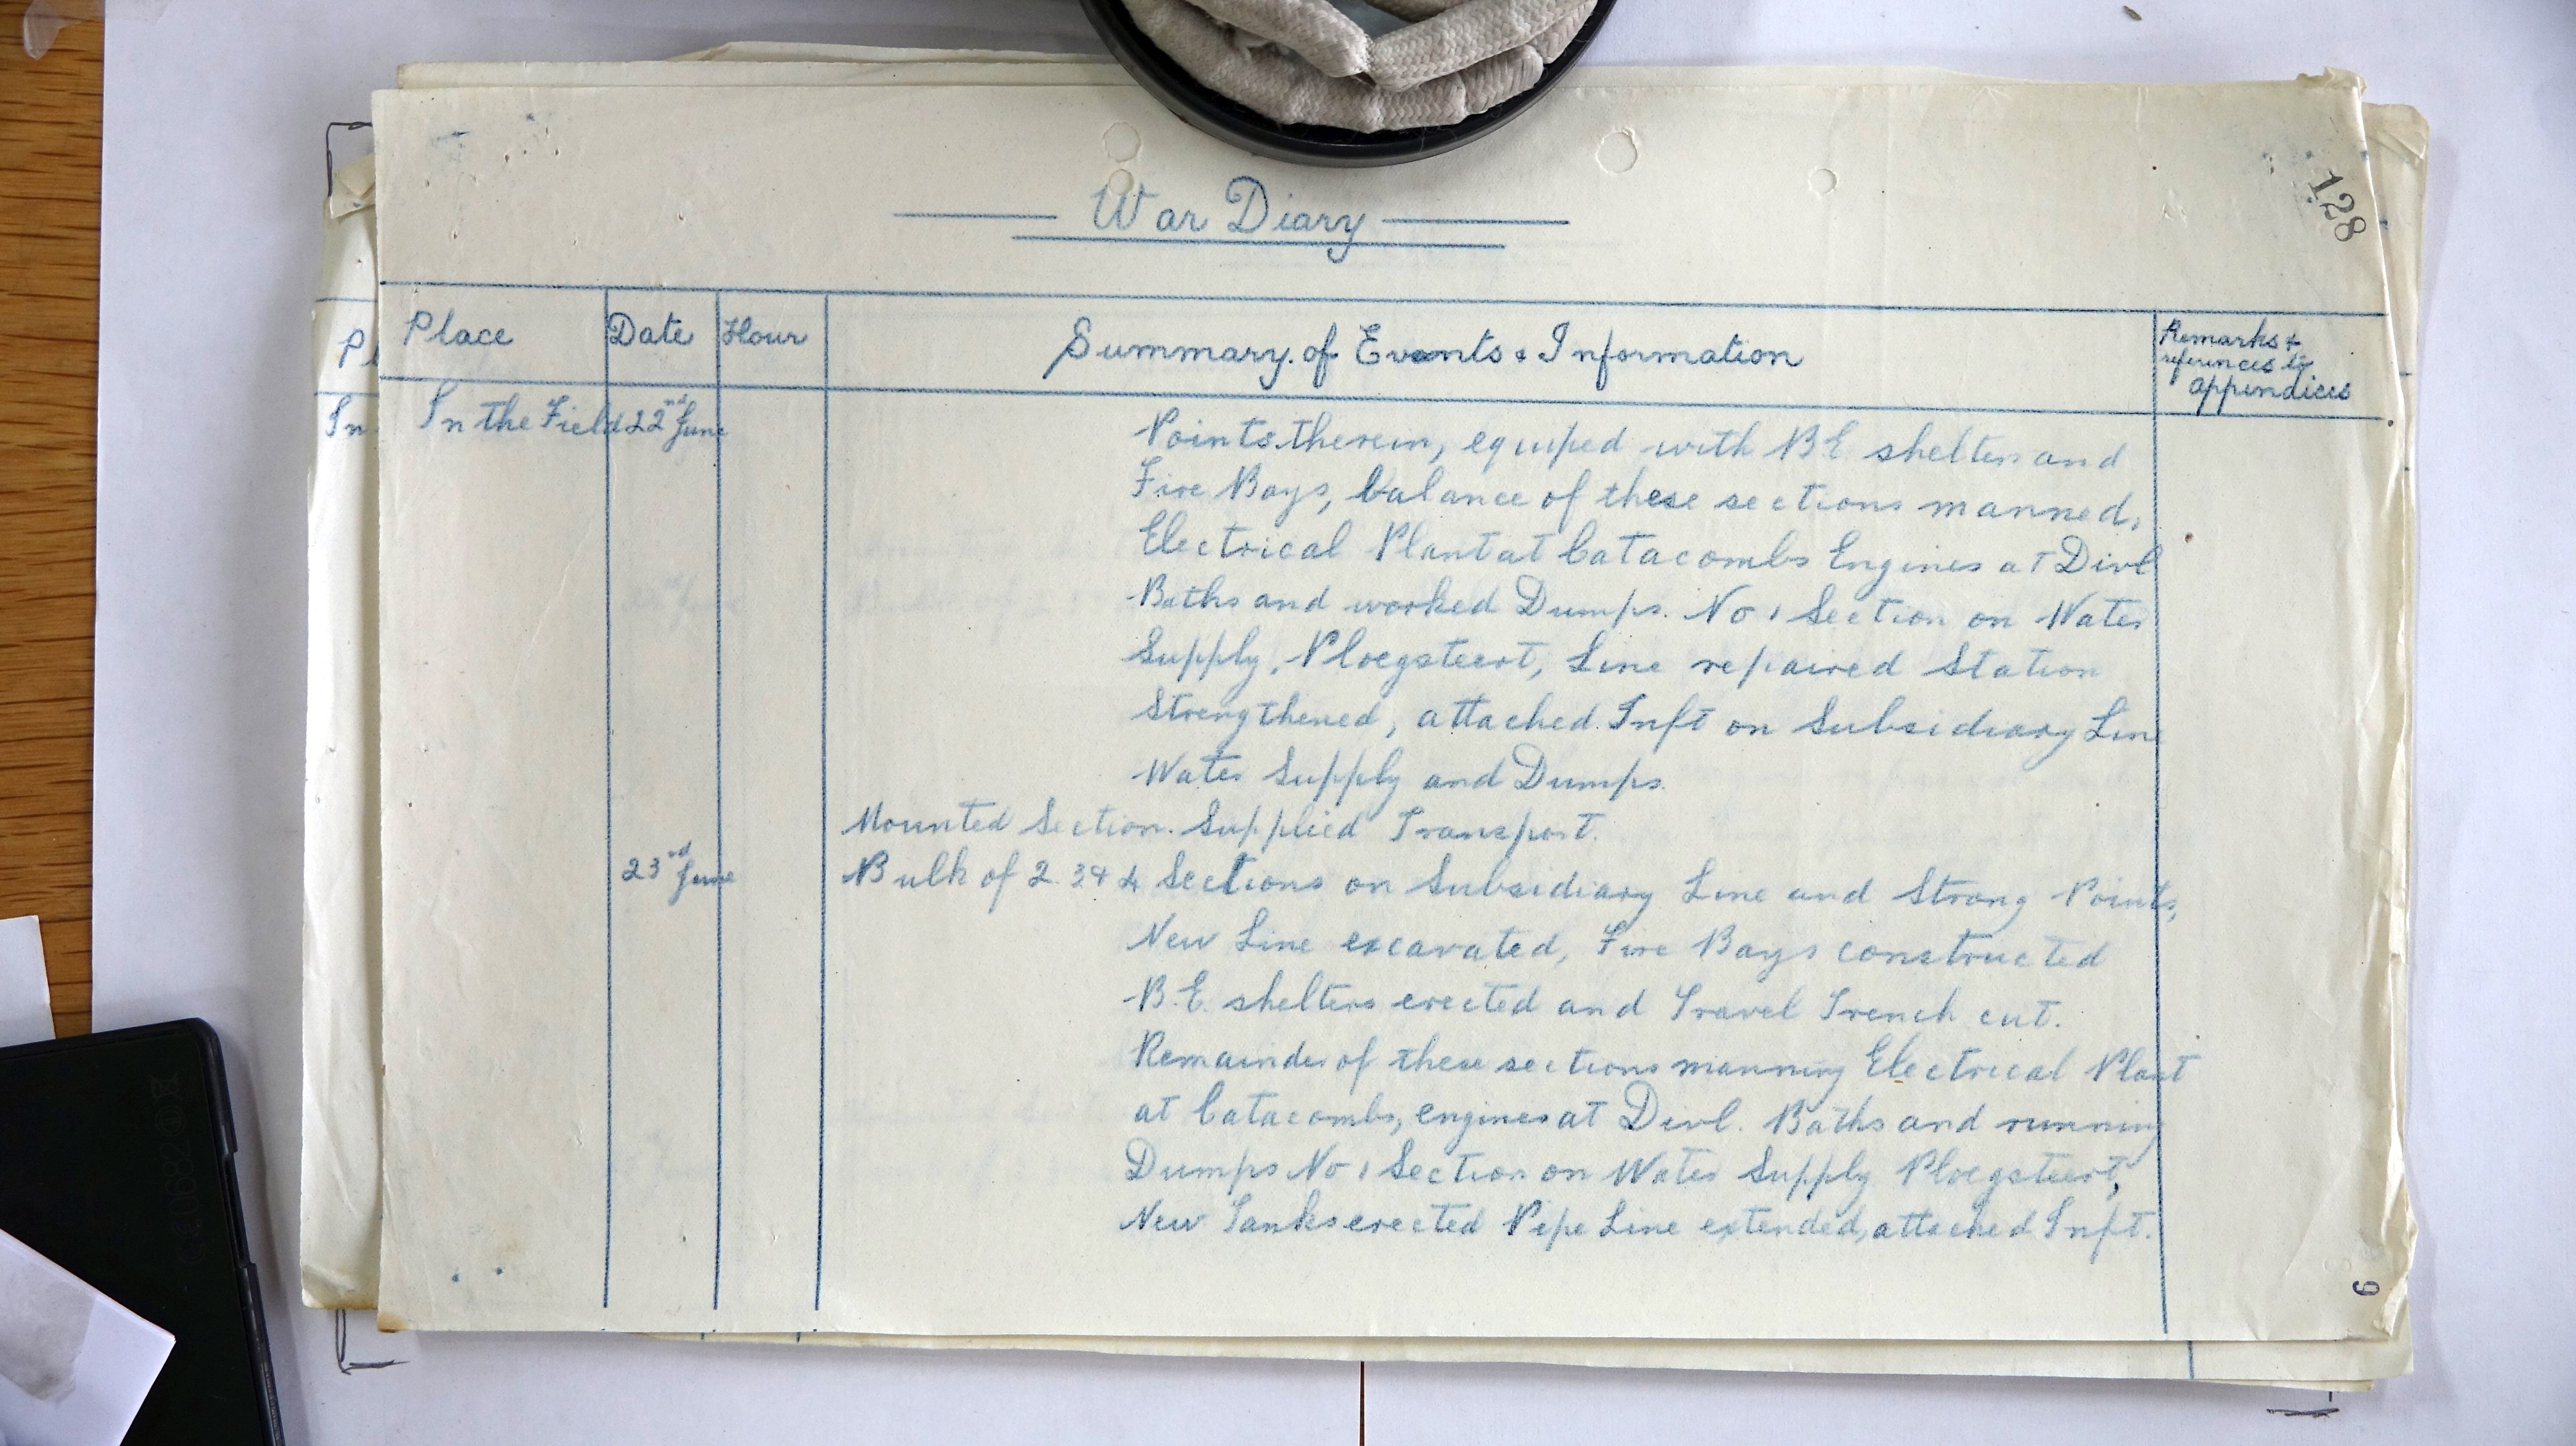 War Diary
128
Place Date Hour Summary of Events & Information Remarks & references to appendices
In the Field 22nd June Points therein, equiped with B.E. shelters and
Fire Bays, balance of these sections manned,
Electrical Plant at Catacombs Engines at Divl
Baths and worked Dumps. No 1 Section on Water
Supply, Ploegsteert, Line repaired Station
Strengthened, attached Inft on Subsidiary Line
Water Supply and Dumps.
Mounted Section. Supplied Transport.
23rd June Bulk of 2. 3 & 4 Sections on Subsidiary Line and Strong Points,
New Line excavated, Fire Bays constructed
B.E. shelters erected and Travel Trench cut.
Remainder of these sections manning Electrical Plant
at Catacombs, engines at Divl. Baths and running
Dumps No 1 Section on Water Supply Ploegsteert,
New Tanks erected Pipe Line extended, attached Inft.
9
Pl
In